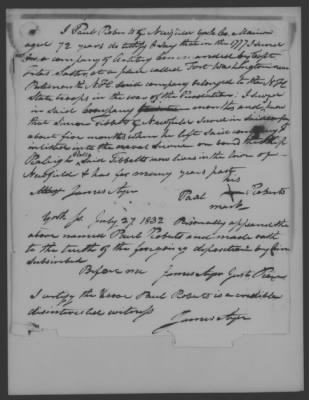 I Paul Roberts of Newfield York Co. & Maine
aged 72 years do testify & say that in the 1777 I served
in a company of Artillery commanded by Capt
at a place called Fort Washington near
Portsmouth N.H. said company belonged to the N.H.
State troops in the war of the Revolution: I served
in said company months and know
that Simon Tibbets of Newfield served in said co for
about five months when he left said company &
inlisted into the naval service on board the ship
Raleigh, said Tibbetts now lives in the town of
Newfield & has for many years past
his
Attest James Ayer Paul X Roberts
mark
York Ss July 27 1832 Personally appeared the
above named Paul Roberts and made oath
to the truth of the foregoing deposition by him
subscribed
Before me James Ayer Just Peace
I certify the above Paul Roberts is a credible
disinterested witness
James Ayer